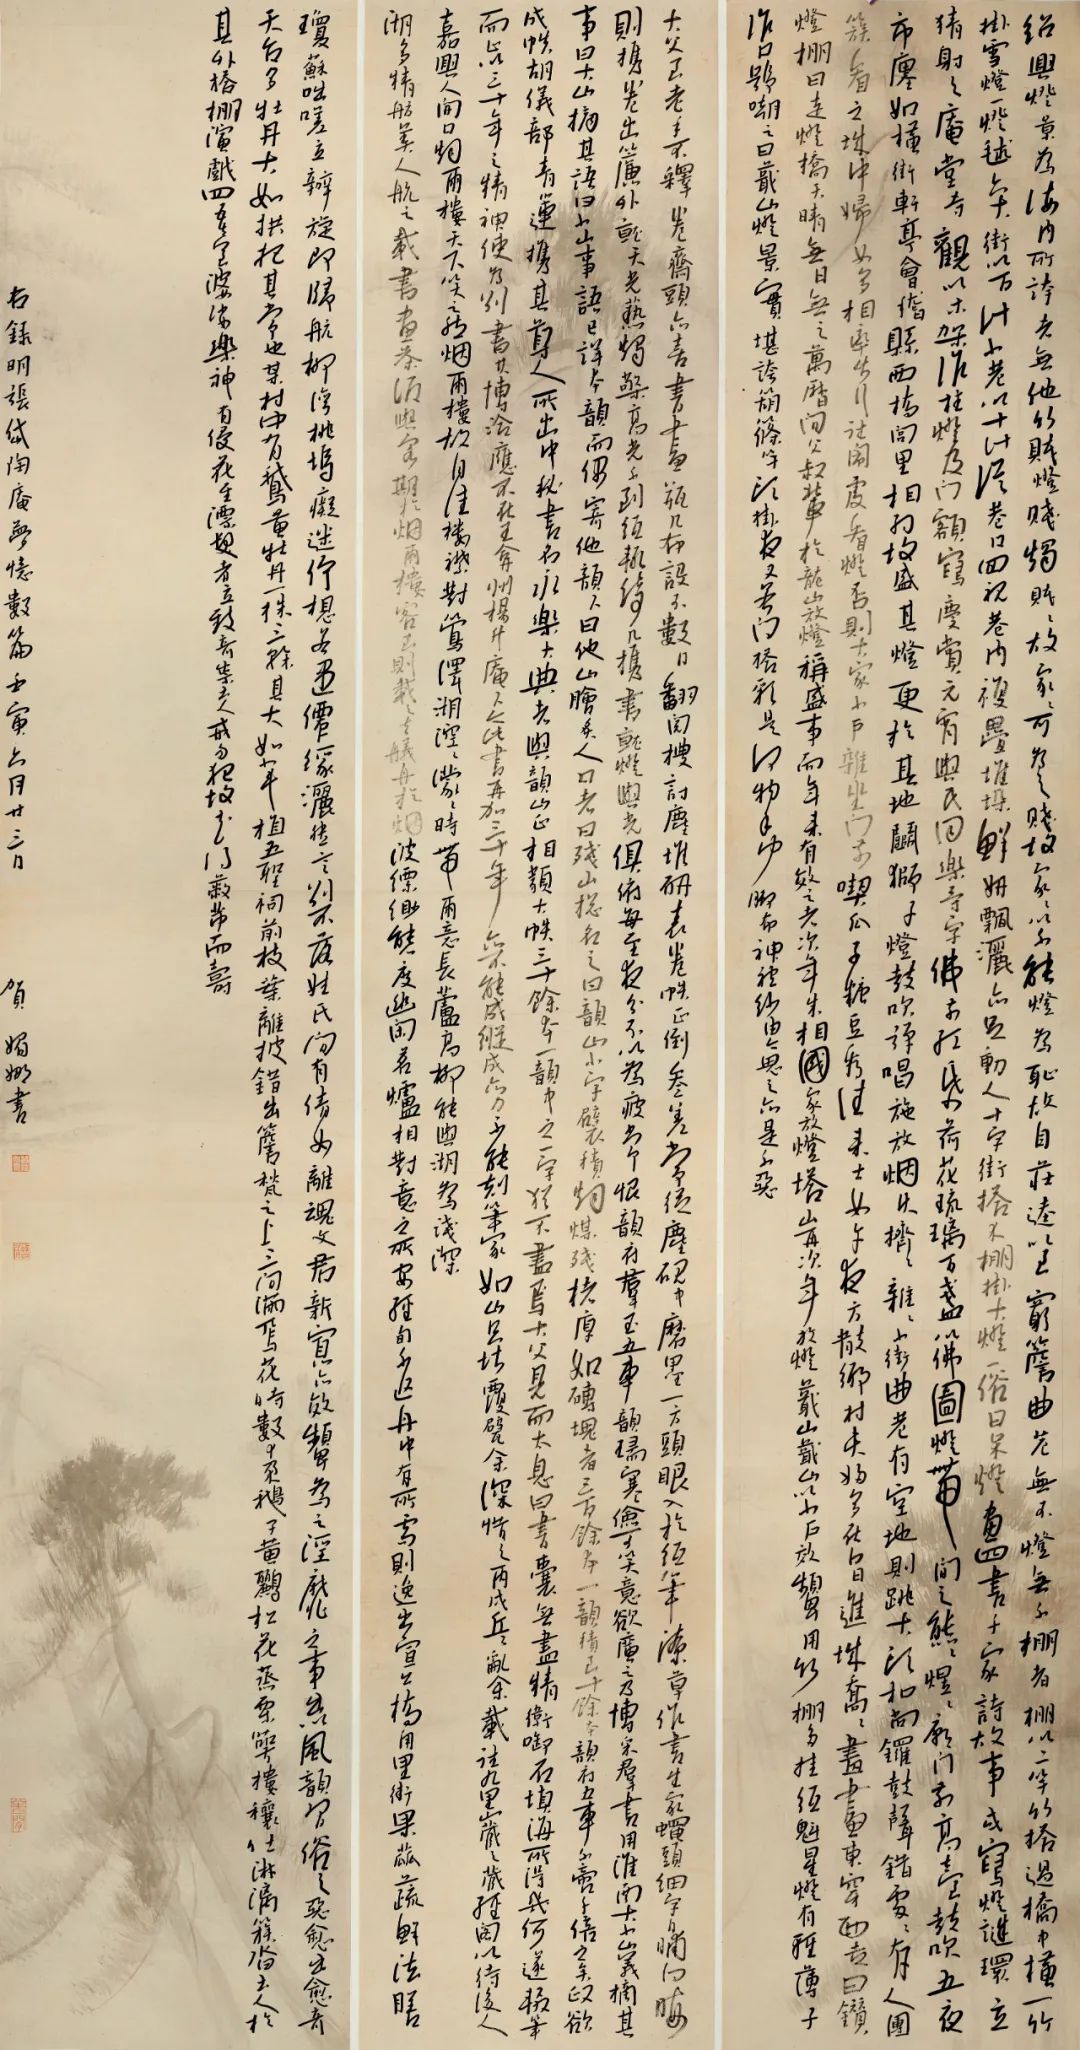 紹興燈景為海內所誇者無他竹賤燈賤燭賤賤故家家可為之賤故家家以不能燈為恥故自莊逵以至窮簷曲巷無不燈無不棚者棚以二竿竹搭過橋中橫一竹
掛雪燈一燈毬六大街以百計小巷以十計從巷口回視巷內複疊堆垛鮮妍飄灑亦足動人十字街搭木棚掛大燈一俗曰呆燈畫四書千家詩故事或寫燈謎環立
猜射之庵堂寺觀以木架作柱燈及門額寫慶賞元宵與民同樂等字佛前紅紙荷花琉璃百盞以佛圖燈帶間之熊熊煜煜廟門前高臺鼓吹五夜
市廛如橫街軒亭會稽縣西橋閭里相約故盛其燈更於其地鬭獅子燈鼓吹彈唱施放烟火擠擠雜雜小街曲巷有空地則跳大頭和尚鑼鼓聲錯處處有人團
簇看之城中婦女多相率步行往鬧處看燈否則大家小戶雜坐門前喫瓜子糖豆看往來士女午夜方散鄉村夫婦多在白日進城喬喬畫畫東穿西走曰鑽
燈棚曰走燈橋天晴無日無之萬曆間父叔輩於龍山放燈稱盛事而年來有效之者次年朱相國家放燈塔山再次年放燈蕺山蕺山以小戶效顰用竹棚多挂紙魁星燈有輕薄子
作口號嘲之曰蕺山燈景實堪誇箶篠竿頭掛夜叉若問搭彩是何物手巾腳布神袍紗由今思之亦是不惡
大父至老手不釋卷齋頭亦喜書畫瓶几布設不數日翻閱搜討塵堆硯表卷帙正倒參差常從塵硯中磨墨一方頭眼入於紙筆潦草作書生家蠅頭細字日晡向晦
則攜卷出簾外就天光爇燭檠高光不到紙輒倚几攜書就燈與光俱俯每至夜分不以為疲常恨韻府羣玉五車韻瑞寒儉可笑意欲廣之乃博采羣書用淮南大小山義摘其
事曰大山摘其語曰小山事語已詳本韻而偶寄他韻下曰他山膾炙人口者曰殘山總名之曰韻山小字襞積烟煤殘楮厚如磚塊者三百餘本一韻積至十餘本韻府五車不啻千倍之矣正欲
成帙胡儀部青蓮攜其尊人所出中秘書名永樂大典者與韻山正相類大帙三十餘本一韻中之一字猶不盡焉大父見而太息曰書囊無盡精衛啣石填海所得幾何遂輟筆
而止以三十年之精神使為別書其博洽應不在王弇州楊升庵下今此書再加三十年亦不能成縱成亦力不能刻筆冢如山只堪覆瓿余深惜之丙戌兵亂余載往九里山藏之藏經閣以待後人
嘉興人開口烟雨樓天下笑之然烟雨樓故自佳樓襟對鶯澤湖涳涳濛濛時帶雨意長蘆高柳能與湖為淺深
湖多精舫美人航之載書畫茶酒與客期於烟雨樓客至則載之去艤舟於烟波縹緲態度幽閒茗爐相對意之所安經旬不返舟中有所需則逸出宣公橋甪里街果蓏蔬鮮法膳
瓊蘇咄嗟立辦旋即歸航柳灣桃塢癡迷佇想若遇僊緣灑然言別不落姓氏間有倩女離魂文君新寡亦效顰為之淫靡之事出以風韻習俗之惡愈出愈奇
天台多牡丹大如拱把其常也某村中有鵝黃牡丹一株三榦其大如斗植五聖祠前枝葉離披錯出簷甃之上三間滿焉花時數十朵鵝子黃鸝松花蒸栗萼樓穰吐淋漓簇沓土人於
其外搭棚演戲四五臺婆娑樂神有侵花至漂髮者立致奇祟土人戒勿犯故花得蔽芾而壽
右錄明張岱陶庵夢憶數篇壬寅六月廿三日 賀媚娜書